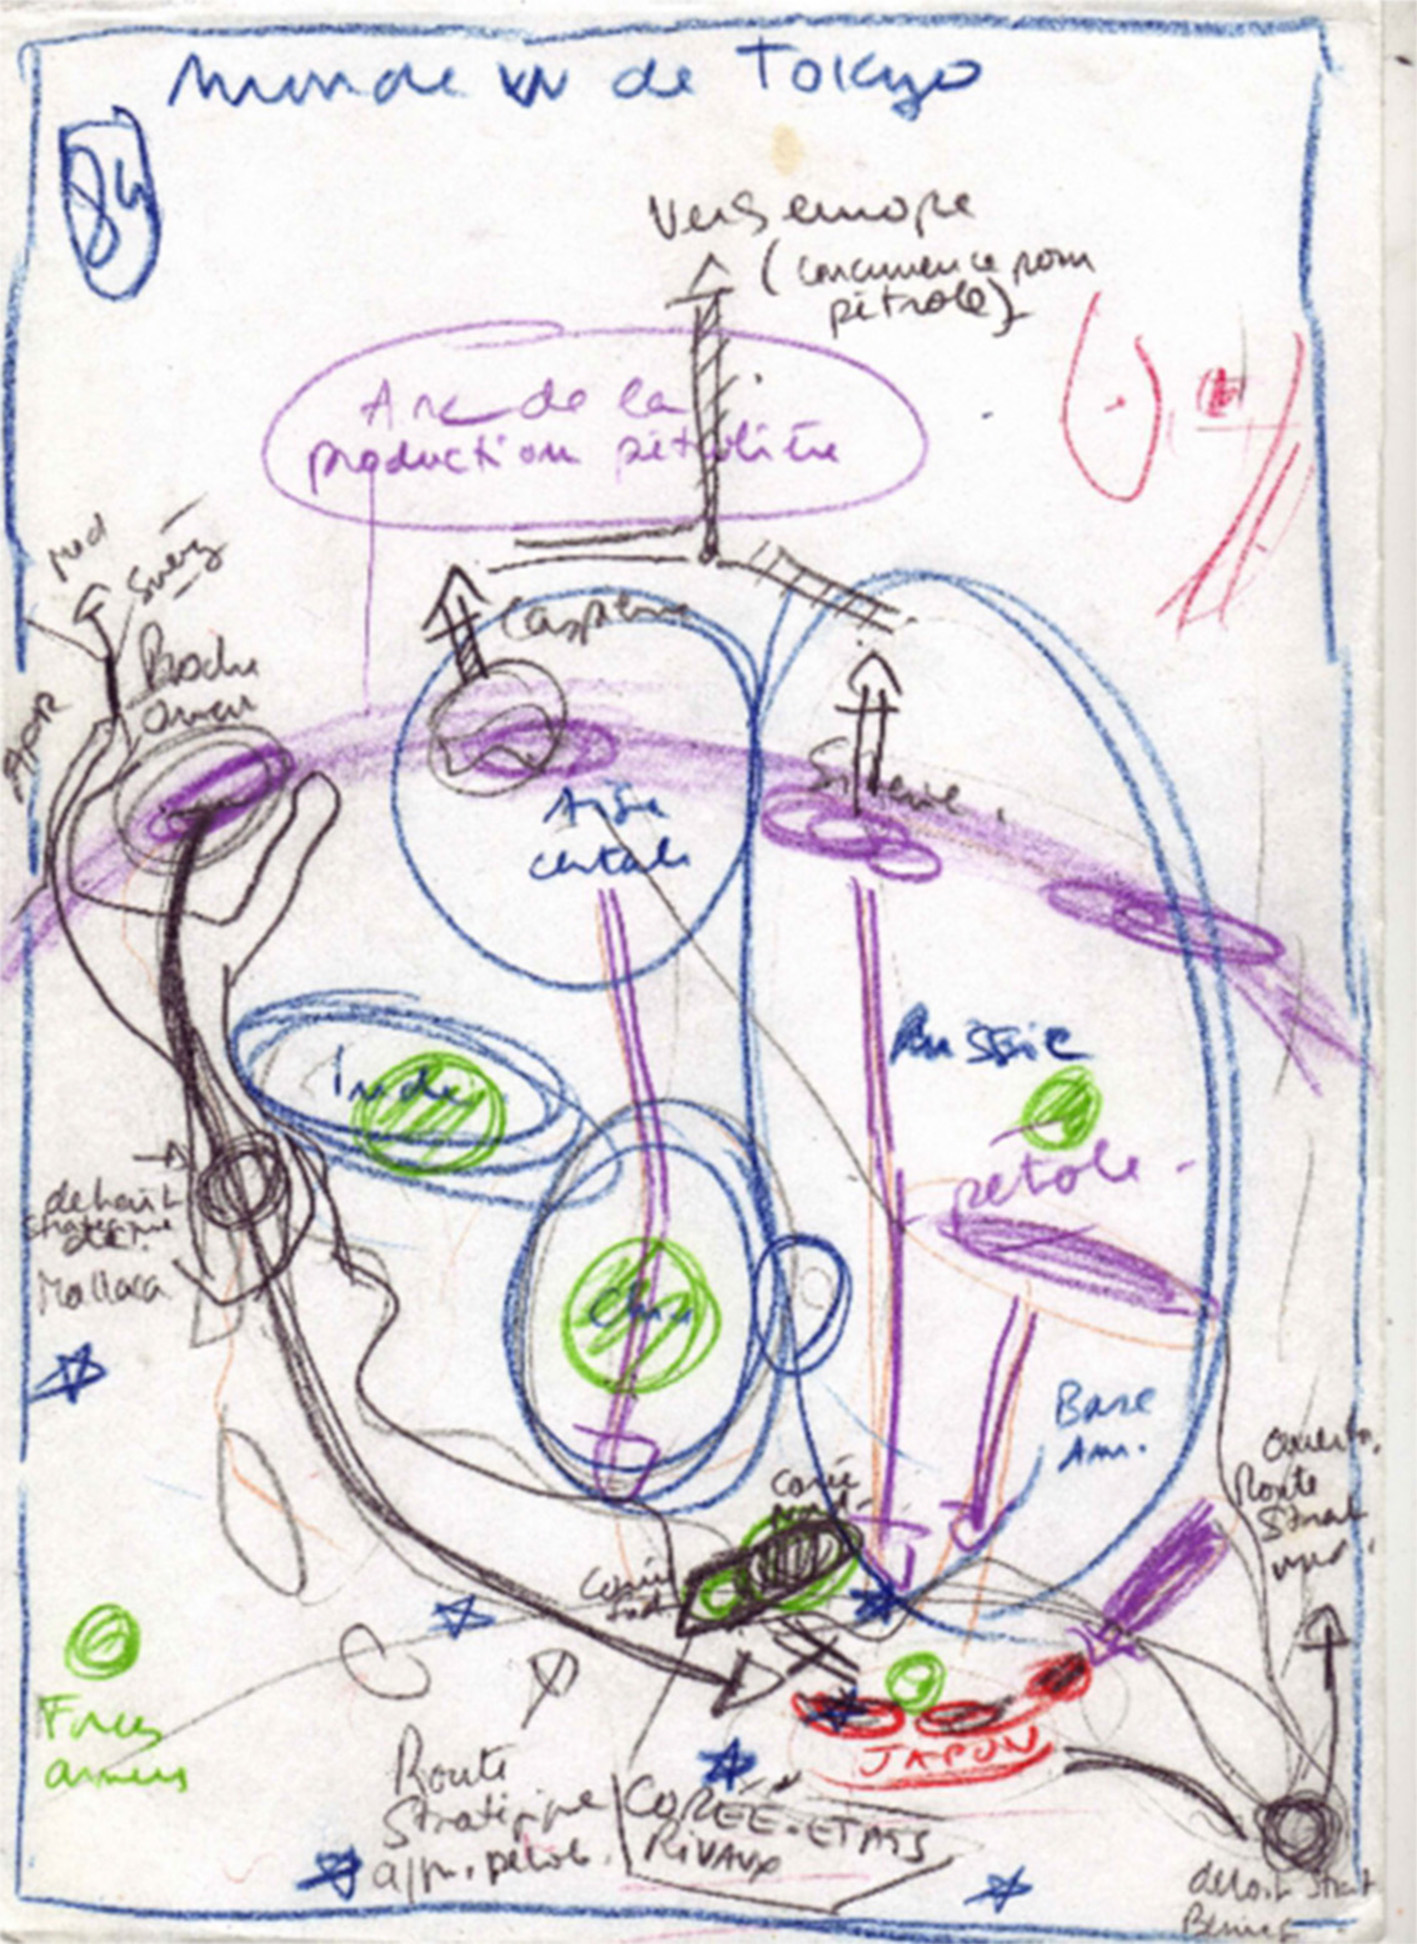 Monde vu de Tokyo
84
Vers europe
(concurrence pour
pétrole)
Arc de la
production pétrolière
Med
Suez
Caspienne
Proche
Orient
Sibérie
Asie
centrale
Russie
Inde
pétrole
détroit
stratégique
Mallaca
Chine
Base
Am.
Corée
nord
Route
Corée
Sud
Forces
armées
JAPON
Route
Stratégique
pétrole.
CORÉE-ETATS
RIVAUX
détroit Strat